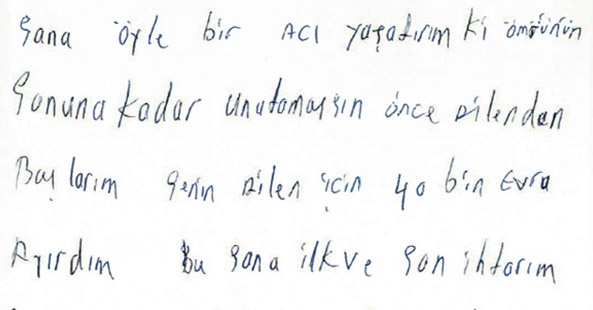 Sana öyle bir ACI yaşatırım ki ömrünün
Sonuna kadar unutamassın önce Ailenden
Başlarım senin Ailen için 40 bin Evro
Ayırdım Bu sana ilk ve son ihtarım